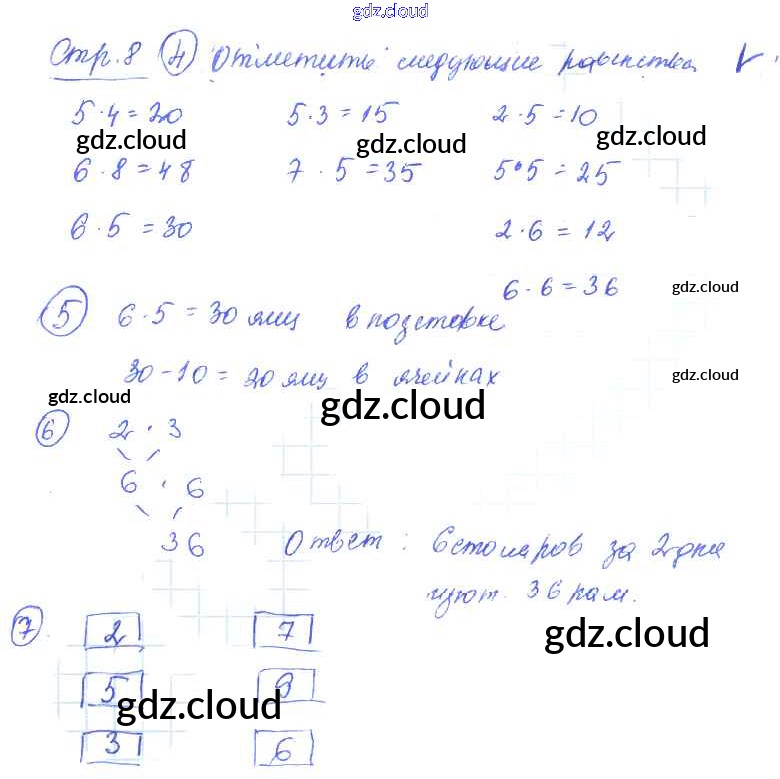 gdz.cloud
Стр. 8 (4) Отметить следующие равенства V
5·4=20 5·3=15 2·5=10
gdz.cloud gdz.cloud gdz.cloud
6·8=48 7·5=35 5·5=25
6·5=30 2·6=12
6·6=36 gdz.cloud
(5) 6·5=30 яиц в подставке
30-10=20 яиц в ячейках gdz.cloud
gdz.cloud gdz.cloud
(6) 2·3
6·6
36 Ответ: 6 столяров за 2 дня
изгот. 36 рам.
(7) 2 7 gdz.cloud
5 9
gdz.cloud
3 6